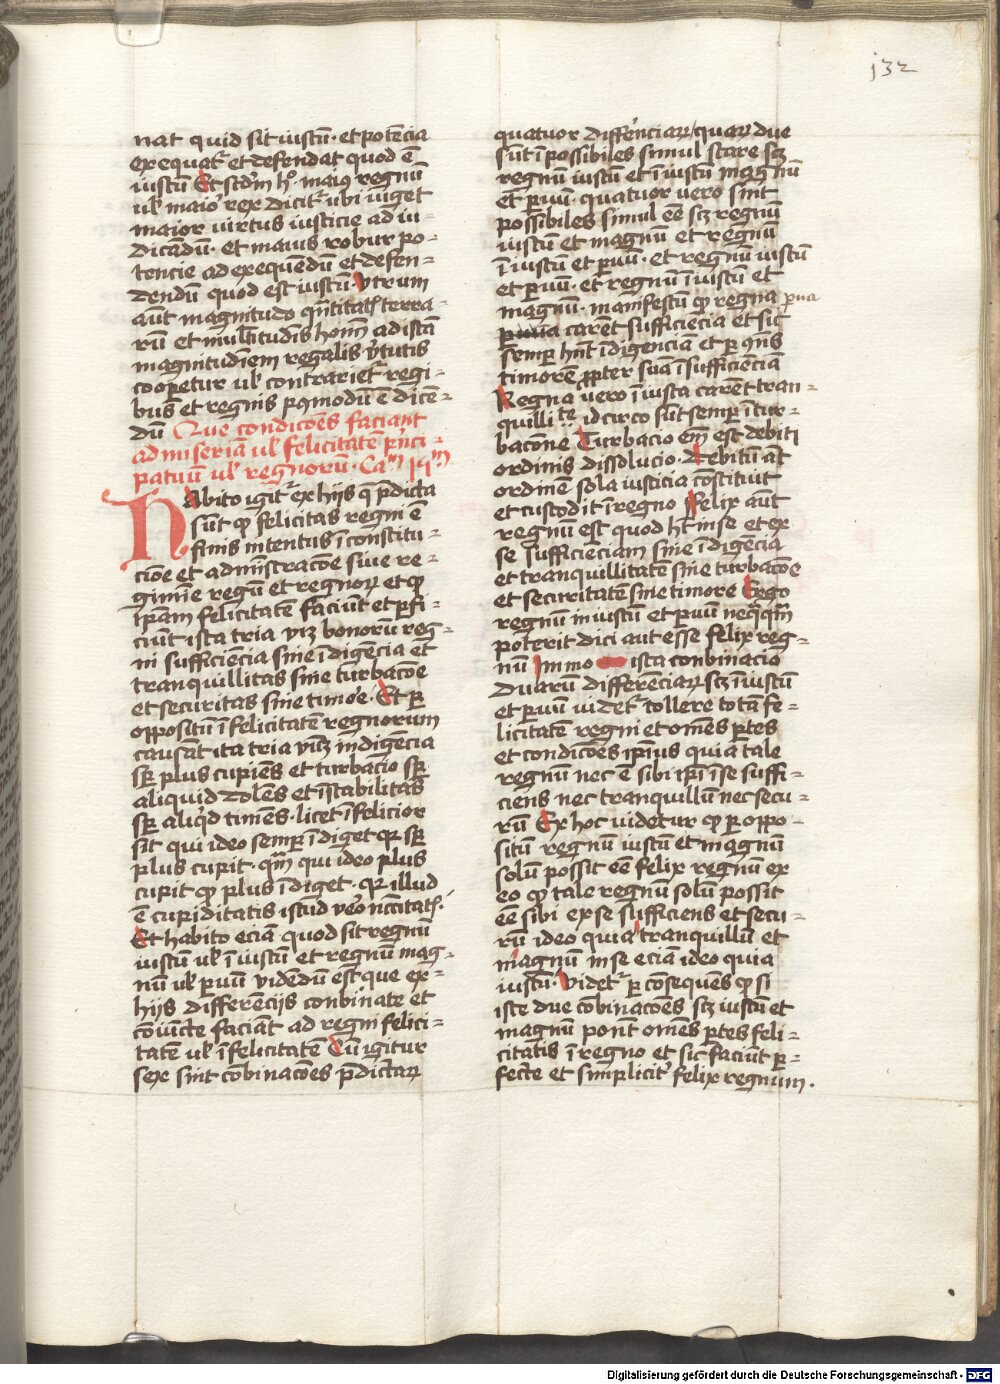 132
nat quid sit iustū · et potēcia
exequat᷑ et defendat quod ē
iustū Et scd̄m h° · maius regnū
ul̕ maio᷑ rex dicit᷑ ubi uiget
maior uirtus iusticie ad iu-
dicādū · et maius robur po-
tencie ad exequēdū et defen-
dendū quod est iustū · Vtrum
aūt magnitudo qn̄titatꝭ terra-
rū et mul̄titudīs hoīm ad istā
magnitudinem regalis v̕tutis
cooperetur ul̕ contrariet᷑ regi-
bus et regnis pꝰmodū ē dicē-
dū Que condicōes faciant
ad miseriā ul̕ felicitatē p̄nci-
patuū ul̕ regnorū · Ca᷑ iiiᵐ
Habito igit᷑ ex hijs q̄ p̄dicta
sūt ꝙ felicitas regni ē
finis intentus ī constitu-
cōne et administracōe siue re-
gimīe regū et regnoꝝ et ꝙ
ip̄am felicitatē faciūt et ꝑfi-
ciūt ista tria viꝫ bonorū reg-
ni sufficiēcia sine īdigēcia et
tranquillitas sine turbacōe
et securitas sine timōe · Et ꝑ
oppositū īfelicitatē regnorum
causāt ita tria viꝫ indigēcia
sꝑ plus cupiēs et turbacio sꝑ
aliquid dolēs et īstabilitas
sꝑ aliq̕d timēs · licet īfelicior
sit qui ideo semꝑ īdiget qꝛ sꝑ
plus cupit · qm̄ qui ideo plus
cupit ꝙ plus īdiget · qꝛ illud
ē cupiditatis istud v̕o nc̄c̄itatꝭ ·
Et habito eciā quod sit regnū
iustū ul̕ īiustū et regnū mag-
nū ul̕ ꝑuū vidēdū est que ex
hijs differēcijs conbinate et
cōiūcte faciāt ad regni felici-
tatē ul̕ īfelicitatē Cū igitur
sex sint cōbinacōes p̄dictaꝝ
quatuor diffēnciaꝝ / quaꝝ due
sūt īpossibiles simul stare scꝫ
regnū iustū et īiustū magnū
et ꝑuū · quatuor vero sint
possibiles simul eē scꝫ regnū
iustū et magnū et regnū
īiustū et ꝑuū · et regnū iustū
et ꝑuū · et regnū īiustū et
magnū · manifestū ꝙ regna ꝑua
carēt sufficiēcia et sic
semꝑ hn̄t īdigenciā et ꝑ qn̄s
timorē ꝓpter suā īsufficienciā
Regna vero īiusta carēt tran-
quillitē idcirco sūt semꝑ ī tur-
bacōne Turbacio em̄ est debiti
ordinis dissolucio · Debitū āt
ordinē sola iusticia cōstituit
et custodit ī regno Felix aūt
regnū est quod ht̄ in se et ex
se sufficienciam sine īdigēcia
et tranquillitatē sine turbacōe
et securitatē sine timore Ergo
regnū iniustū et ꝑuū neq̄q̄m
poterit dici aut esse felix reg-
nū Immo ista conbinacio
duarū differēciaꝝ scꝫ īiustū
et ꝑuū uidet᷑ tollere totā fe-
licitatē regni et omēs ꝑtes
et condicōes ip̄ius quia tale
regnū nec ē sibi ip̄i ī se suffi-
ciens nec tranquillū nec secu-
rū Ex hoc uidetur ꝙ ꝑ oppo-
sitū regnū iustū et magnū
solū possit eē felix regnū ex
eo ꝙ tale regnū solū possit
eē sibi ex se sufficiens et secu-
rū ideo quia tranquillū et
magnū in se eciā ideo quia
iustū · Videt᷑ ꝑ cōsequēs ꝙ si
iste due cōbinacōes scꝫ iustū et
magnū ponūt omēs ꝑtes feli-
citatis ī regno et sic faciūt ꝑ-
fecte et simplicit᷑ felix regnum ·
Digitalisierung gefördert durch die Deutsche Forschungsgemeinschaft - DFG